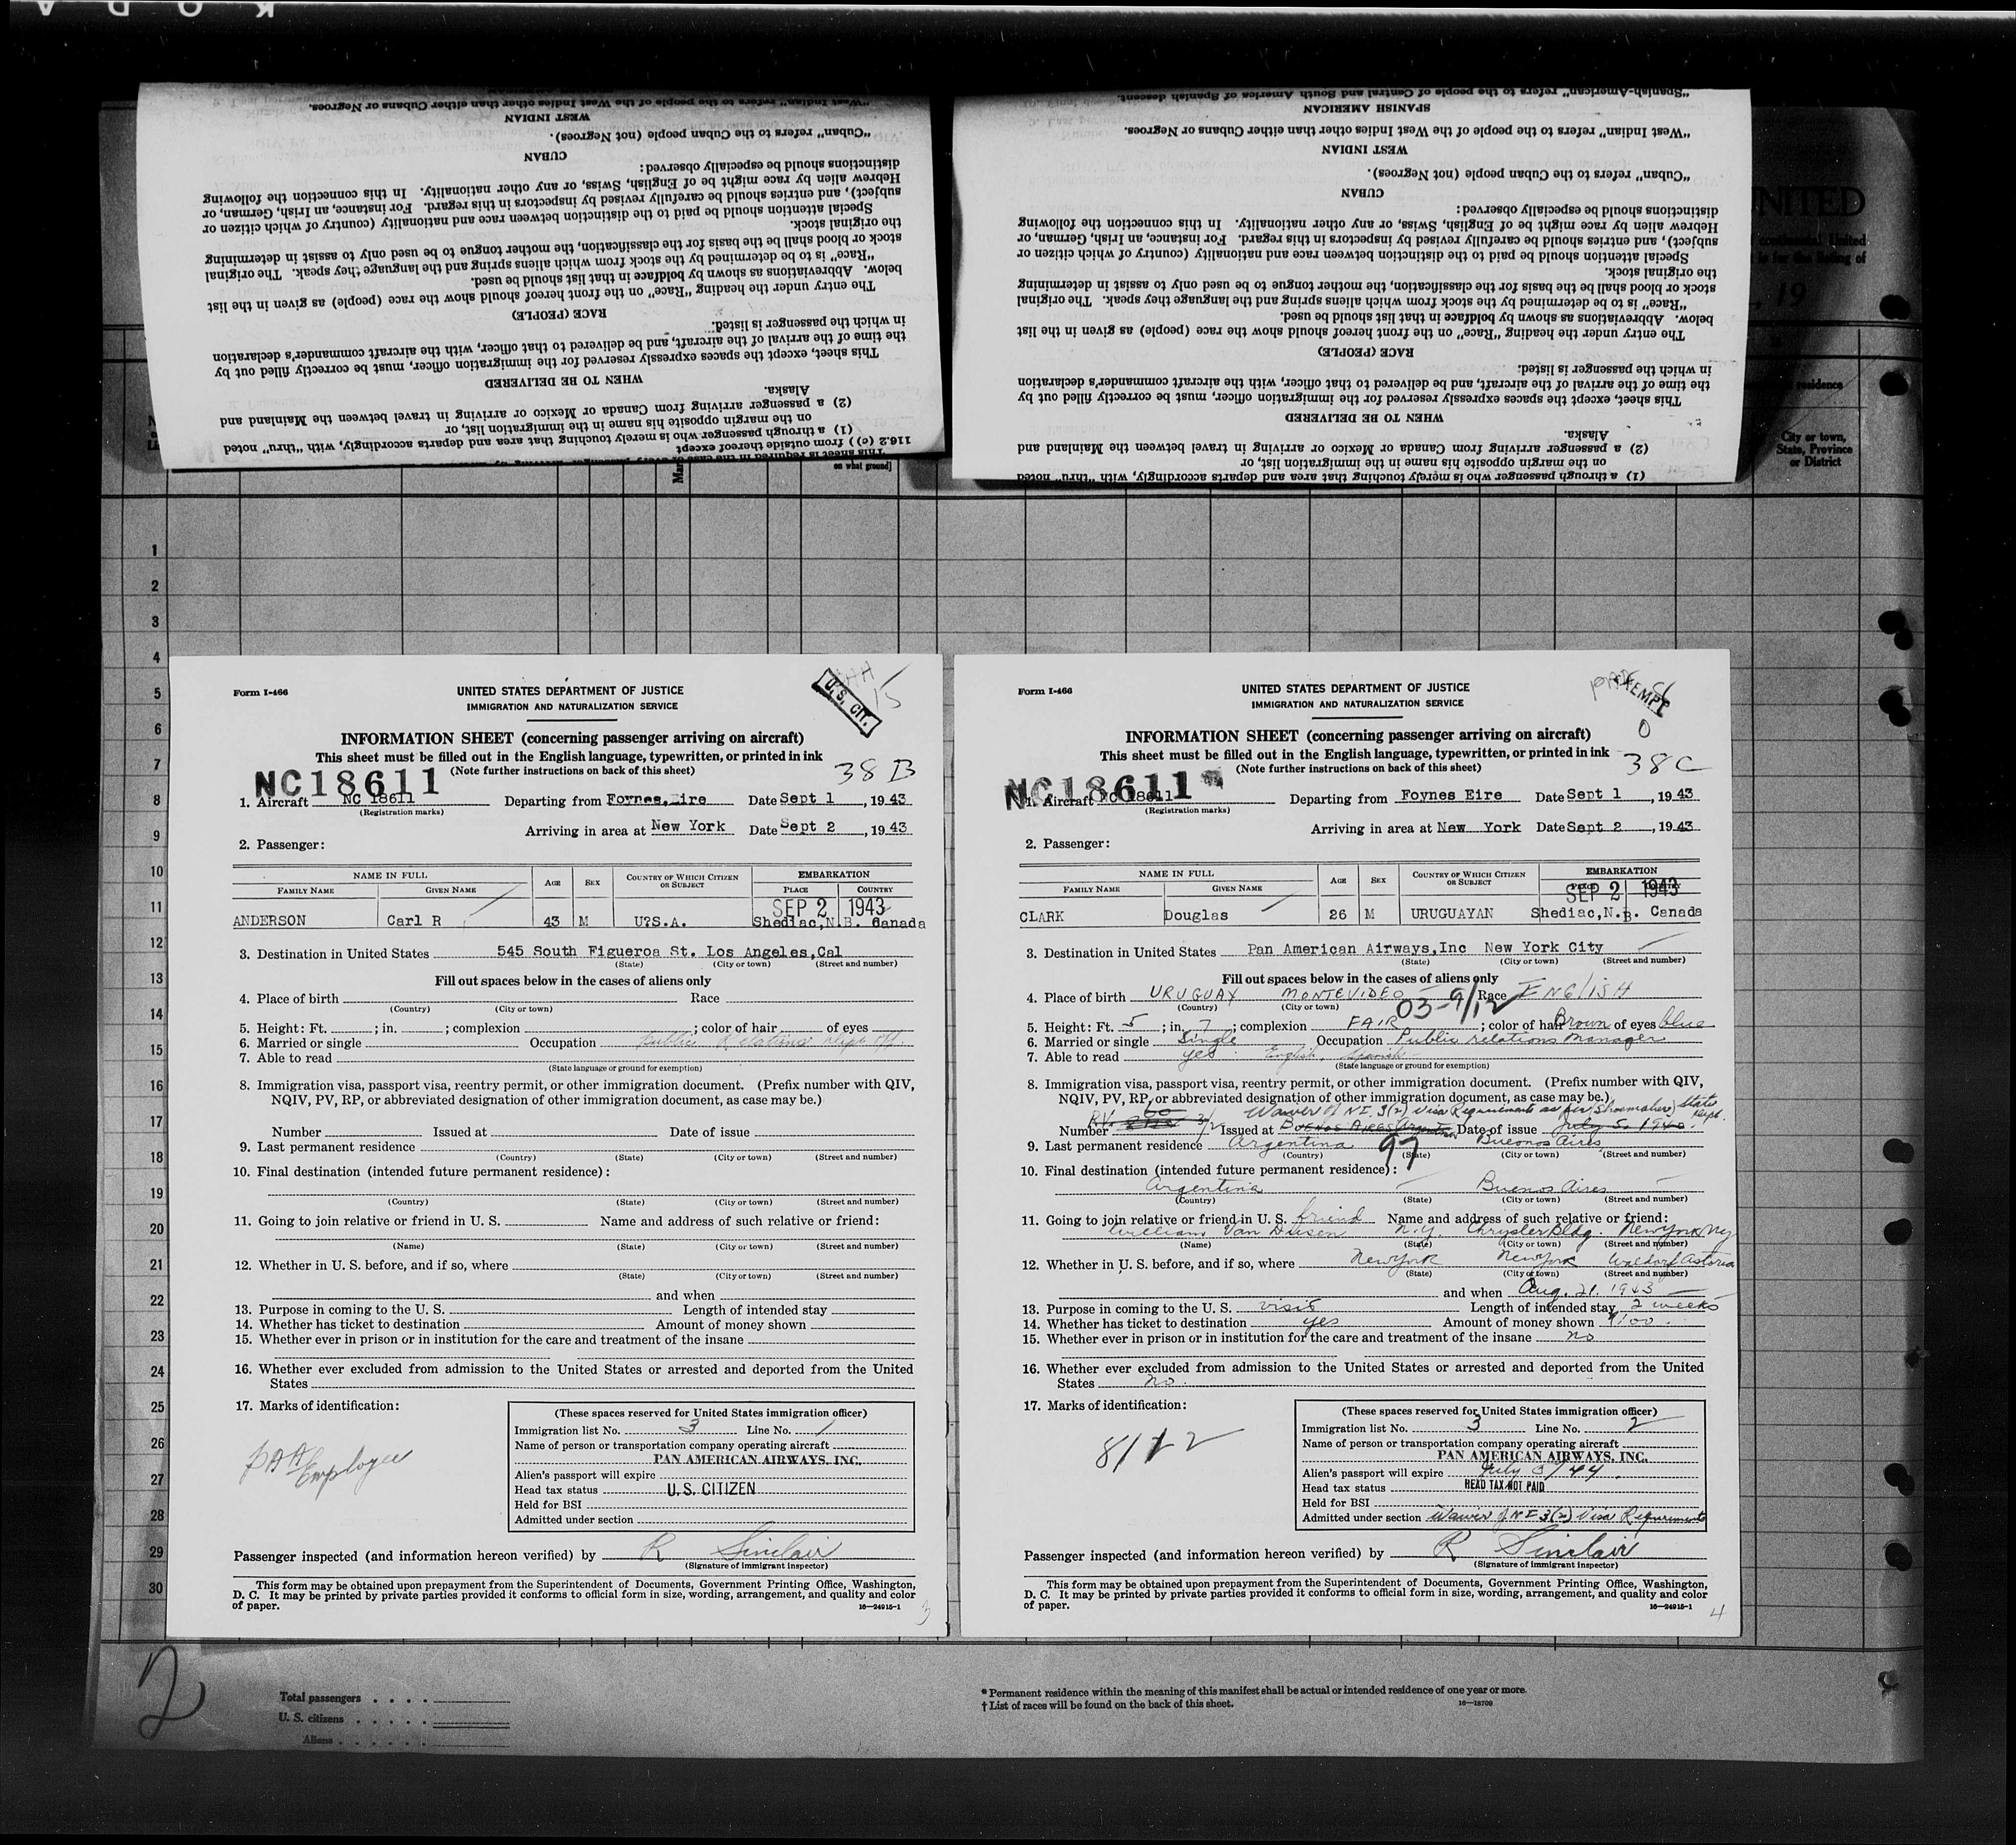 KODA
"West Indian" refers to the people of the West Indies other than either Cubans or Negroes.
WEST INDIAN
"Cuban" refers to the Cuban people (not Negroes).
CUBAN
distinctions should be especially observed:
Hebrew alien by race might be of English, Swiss, or any other nationality. In this connection the following
subject), and entries should be carefully revised by inspectors in this regard. For instance, an Irish, German, or
Special attention should be paid to the distinction between race and nationality (country of which citizen or
the original stock.
stock or blood shall be the basis for the classification, the mother tongue to be used only to assist in determining
"Race" is to be determined by the stock from which aliens spring and the language they speak. The original
below. Abbreviations as shown by boldface in that list should be used.
The entry under the heading "Race" on the front hereof should show the race (people) as given in the list
RACE (PEOPLE)
in which the passenger is listed.
the time of the arrival of the aircraft, and be delivered to that officer, with the aircraft commander's declaration
This sheet, except the spaces expressly reserved for the immigration officer, must be correctly filled out by
WHEN TO BE DELIVERED
Alaska.
(2) a passenger arriving from Canada or Mexico or arriving in travel between the Mainland and
on the margin opposite his name in the immigration list, or
(1) a through passenger who is merely touching that area and departs accordingly, with "thru" noted
116.2 (c)) from outside thereof except
"Spanish-American" refers to the people of Central and South America of Spanish descent.
SPANISH AMERICAN
"West Indian" refers to the people of the West Indies other than either Cubans or Negroes.
WEST INDIAN
"Cuban" refers to the Cuban people (not Negroes).
CUBAN
distinctions should be especially observed:
Hebrew alien by race might be of English, Swiss, or any other nationality. In this connection the following
subject), and entries should be carefully revised by inspectors in this regard. For instance, an Irish, German, or
Special attention should be paid to the distinction between race and nationality (country of which citizen or
the original stock.
stock or blood shall be the basis for the classification, the mother tongue to be used only to assist in determining
"Race" is to be determined by the stock from which aliens spring and the language they speak. The original
below. Abbreviations as shown by boldface in that list should be used.
The entry under the heading "Race" on the front hereof should show the race (people) as given in the list
RACE (PEOPLE)
in which the passenger is listed.
the time of the arrival of the aircraft, and be delivered to that officer, with the aircraft commander's declaration
This sheet, except the spaces expressly reserved for the immigration officer, must be correctly filled out by
WHEN TO BE DELIVERED
Alaska.
(2) a passenger arriving from Canada or Mexico or arriving in travel between the Mainland and
on the margin opposite his name in the immigration list, or
(1) a through passenger who is merely touching that area and departs accordingly, with "thru" noted
NITED
continental United
is for the listing of
, 19
residence
City or town,
State, Province
or District
on what ground]
1
2
3
4
5
6
7
8
9
10
11
12
13
14
15
16
17
18
19
20
21
22
23
24
25
26
27
28
29
30
Form I-466
UNITED STATES DEPARTMENT OF JUSTICE
IMMIGRATION AND NATURALIZATION SERVICE
U. S. CIT.
15
INFORMATION SHEET (concerning passenger arriving on aircraft)
This sheet must be filled out in the English language, typewritten, or printed in ink
(Note further instructions on back of this sheet)
38 B
NC18611
1. Aircraft NC 18611 Departing from Foynes, Eire Date Sept 1, 1943
(Registration marks)
Arriving in area at New York Date Sept 2, 1943
2. Passenger:
NAME IN FULL AGE SEX COUNTRY OF WHICH CITIZEN OR SUBJECT EMBARKATION
FAMILY NAME GIVEN NAME PLACE COUNTRY
SEP 2 1943
ANDERSON Carl R 43 M U?S.A. Shediac,N.B. Canada
3. Destination in United States 545 South Figueroa St. Los Angeles,Cal
(State) (City or town) (Street and number)
Fill out spaces below in the cases of aliens only
4. Place of birth Race
(Country) (City or town)
5. Height: Ft. ; in. ; complexion ; color of hair of eyes
6. Married or single Occupation Public Relations
7. Able to read
(State language or ground for exemption)
8. Immigration visa, passport visa, reentry permit, or other immigration document. (Prefix number with QIV,
NQIV, PV, RP, or abbreviated designation of other immigration document, as case may be.)
Number Issued at Date of issue
9. Last permanent residence
(Country) (State) (City or town) (Street and number)
10. Final destination (intended future permanent residence):
(Country) (State) (City or town) (Street and number)
11. Going to join relative or friend in U. S. Name and address of such relative or friend:
(Name) (State) (City or town) (Street and number)
12. Whether in U. S. before, and if so, where
(State) (City or town) (Street and number)
and when
13. Purpose in coming to the U. S. Length of intended stay
14. Whether has ticket to destination Amount of money shown
15. Whether ever in prison or in institution for the care and treatment of the insane
16. Whether ever excluded from admission to the United States or arrested and deported from the United
States
17. Marks of identification:
PAA Employee
(These spaces reserved for United States immigration officer)
Immigration list No. 3 Line No. 1
Name of person or transportation company operating aircraft
PAN AMERICAN AIRWAYS, INC.
Alien's passport will expire
Head tax status U. S. CITIZEN
Held for BSI
Admitted under section
Passenger inspected (and information hereon verified) by R Sinclair
(Signature of immigrant inspector)
This form may be obtained upon prepayment from the Superintendent of Documents, Government Printing Office, Washington,
D. C. It may be printed by private parties provided it conforms to official form in size, wording, arrangement, and quality and color
of paper. 16—24915-1
3
Form I-466
UNITED STATES DEPARTMENT OF JUSTICE
IMMIGRATION AND NATURALIZATION SERVICE
EXEMPT
0
INFORMATION SHEET (concerning passenger arriving on aircraft)
This sheet must be filled out in the English language, typewritten, or printed in ink
(Note further instructions on back of this sheet)
38 C
NC18611
1. Aircraft NC 18611 Departing from Foynes Eire Date Sept 1, 1943
(Registration marks)
Arriving in area at New York Date Sept 2, 1943
2. Passenger:
NAME IN FULL AGE SEX COUNTRY OF WHICH CITIZEN OR SUBJECT EMBARKATION
FAMILY NAME GIVEN NAME
SEP 2 1943
CLARK Douglas 26 M URUGUAYAN Shediac,N.B. Canada
3. Destination in United States Pan American Airways,Inc New York City
(State) (City or town) (Street and number)
Fill out spaces below in the cases of aliens only
4. Place of birth URUGUAY MONTEVIDEO Race ENGLISH
(Country) (City or town) 03-9/12
5. Height: Ft. 5 ; in. 7 ; complexion FAIR ; color of hair Brown of eyes blue
6. Married or single Single Occupation Public relations manager
7. Able to read yes English, Spanish
(State language or ground for exemption)
8. Immigration visa, passport visa, reentry permit, or other immigration document. (Prefix number with QIV,
NQIV, PV, RP, or abbreviated designation of other immigration document, as case may be.)
Waiver of NI 3(2) Visa Requirements as per (Shoemaker) State Dept.
Number 3/2 Issued at Buenos Aires Argentina Date of issue July 5. 1940.
9. Last permanent residence Argentina 97 Buenos Aires
(Country) (State) (City or town) (Street and number)
10. Final destination (intended future permanent residence):
Argentina Buenos Aires
(Country) (State) (City or town) (Street and number)
11. Going to join relative or friend in U. S. friend Name and address of such relative or friend:
William Van Dusen N.Y. Chrysler Bldg. New York NY
(Name) (State) (City or town) (Street and number)
12. Whether in U. S. before, and if so, where New York New York Waldorf Astoria
(State) (City or town) (Street and number)
and when Aug. 21. 1943
13. Purpose in coming to the U. S. visit Length of intended stay 2 weeks
14. Whether has ticket to destination yes Amount of money shown $100.
15. Whether ever in prison or in institution for the care and treatment of the insane no
16. Whether ever excluded from admission to the United States or arrested and deported from the United
States no.
17. Marks of identification:
(These spaces reserved for United States immigration officer)
Immigration list No. 3 Line No. 2
Name of person or transportation company operating aircraft
PAN AMERICAN AIRWAYS, INC.
Alien's passport will expire July 5/44.
Head tax status HEAD TAX NOT PAID
Held for BSI
Admitted under section Waiver of NI 3(2) Visa Requirements
Passenger inspected (and information hereon verified) by R Sinclair
(Signature of immigrant inspector)
This form may be obtained upon prepayment from the Superintendent of Documents, Government Printing Office, Washington,
D. C. It may be printed by private parties provided it conforms to official form in size, wording, arrangement, and quality and color
of paper. 16—24915-1
4
2
Total passengers
U. S. citizens
Aliens
* Permanent residence within the meaning of this manifest shall be actual or intended residence of one year or more.
† List of races will be found on the back of this sheet. 16—18709